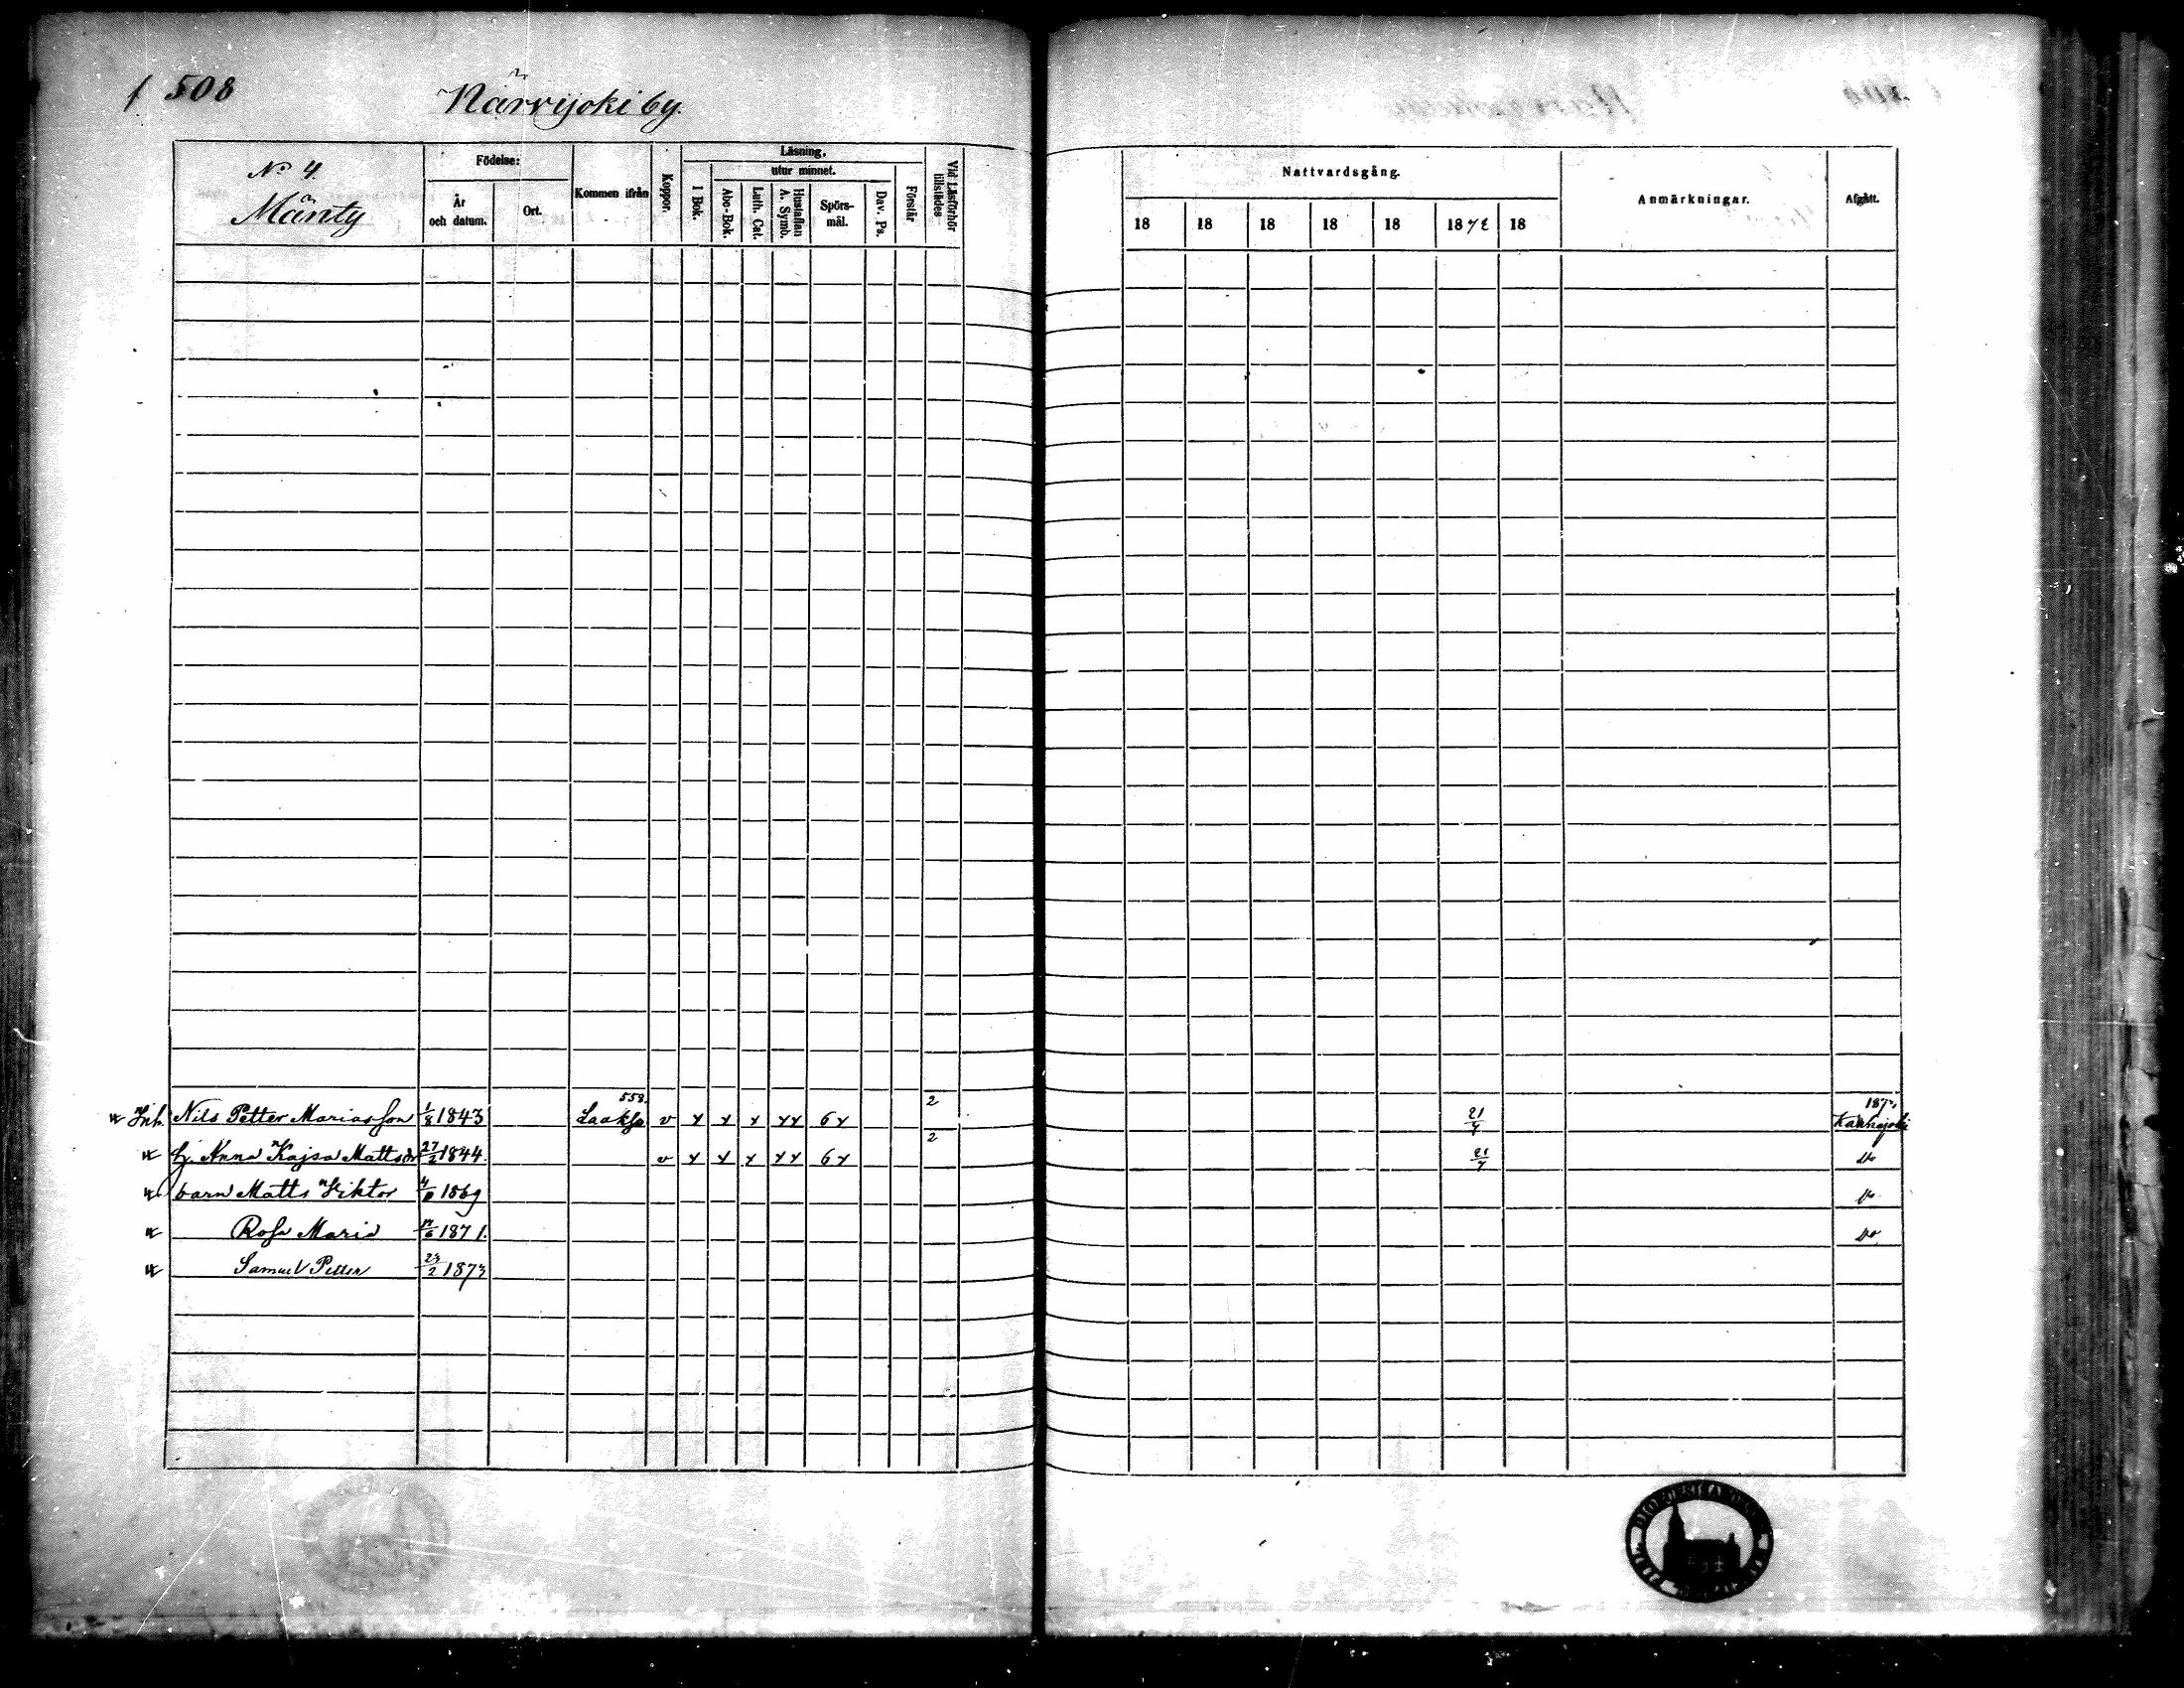 508
Närvijoki by.
No 4.
Mänty
Födelse:
År och datum.
Ort.
Kommen ifrån
Koppor.
Läsning,
utur minnet.
I Bok.
Abc-Bok.
Luth. Cat.
Hustaflan A. Symb.
Spörs-mål.
Dav. Ps.
Förstår
Vid Läsförhör tillstädes
Nattvardsgång.
18 18 18 18 18 1872 18
Anmärkningar.
Afgått.
Inh. Nils Petter Mariasson 1/8 1843 558. Laakso v x x x xx 6x 2 21/7 Kauhajoki
hj. Anna Kajsa Mattsdr 27/2 1844. v x x x xx 6x 2 21/7 do
barn Matts Viktor 1869 do
Rosa Maria 1871. do
Samuel Petter 23/2 1873